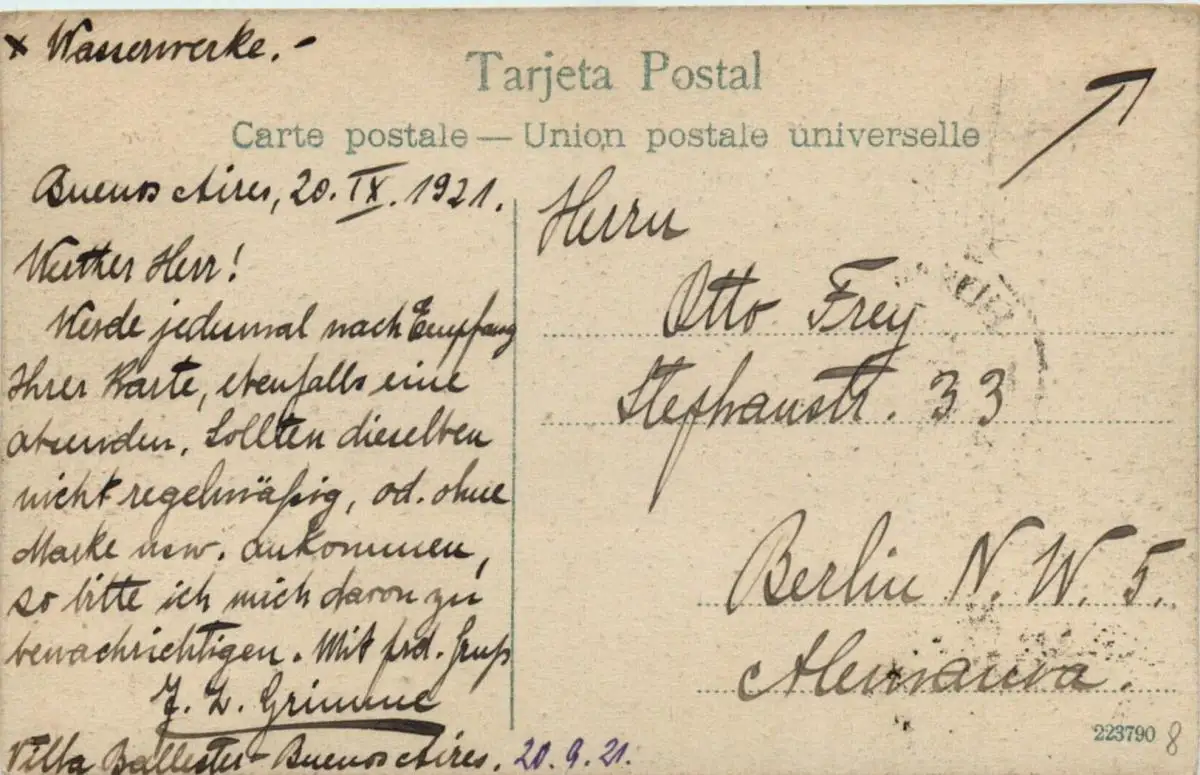 x Wasserwerke. –
Tarjeta Postal
Carte postale — Union postale universelle
Buenos Aires, 20. IX. 1921.
Werther Herr!
Werde jedesmal nach Empfang
Ihrer Karte, ebenfalls eine
absenden. Sollten dieselben
nicht regelmäßig, od. ohne
Marke usw. ankommen,
so bitte ich mich davon zu
benachrichtigen. Mit frd. Gruß
J. Z. Grimme
Villa Ballester - Buenos Aires. 20.9.21.
Herrn
Otto Frey
Stephanstr. 33
Berlin N. W. 5.
Alemania.
223790 8